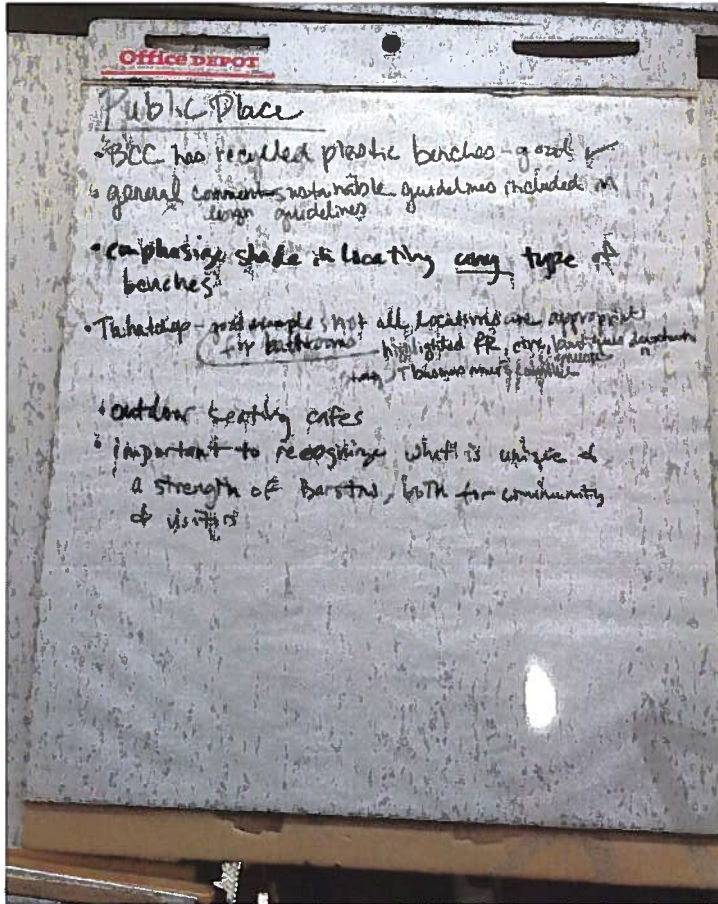 Office DEPOT
Public Place
• BCC has recycled plastic benches - good ✓
• general comment - sustainable guidelines included in
design guidelines
• emphasize shade in locating any type of
benches
• Tehachapi - good example, not all locations are appropriate
for bathrooms highlighted RR, downtown
• outdoor seating cafes
• important to recognize what is unique &
a strength of Barstow, both for community
& visitors